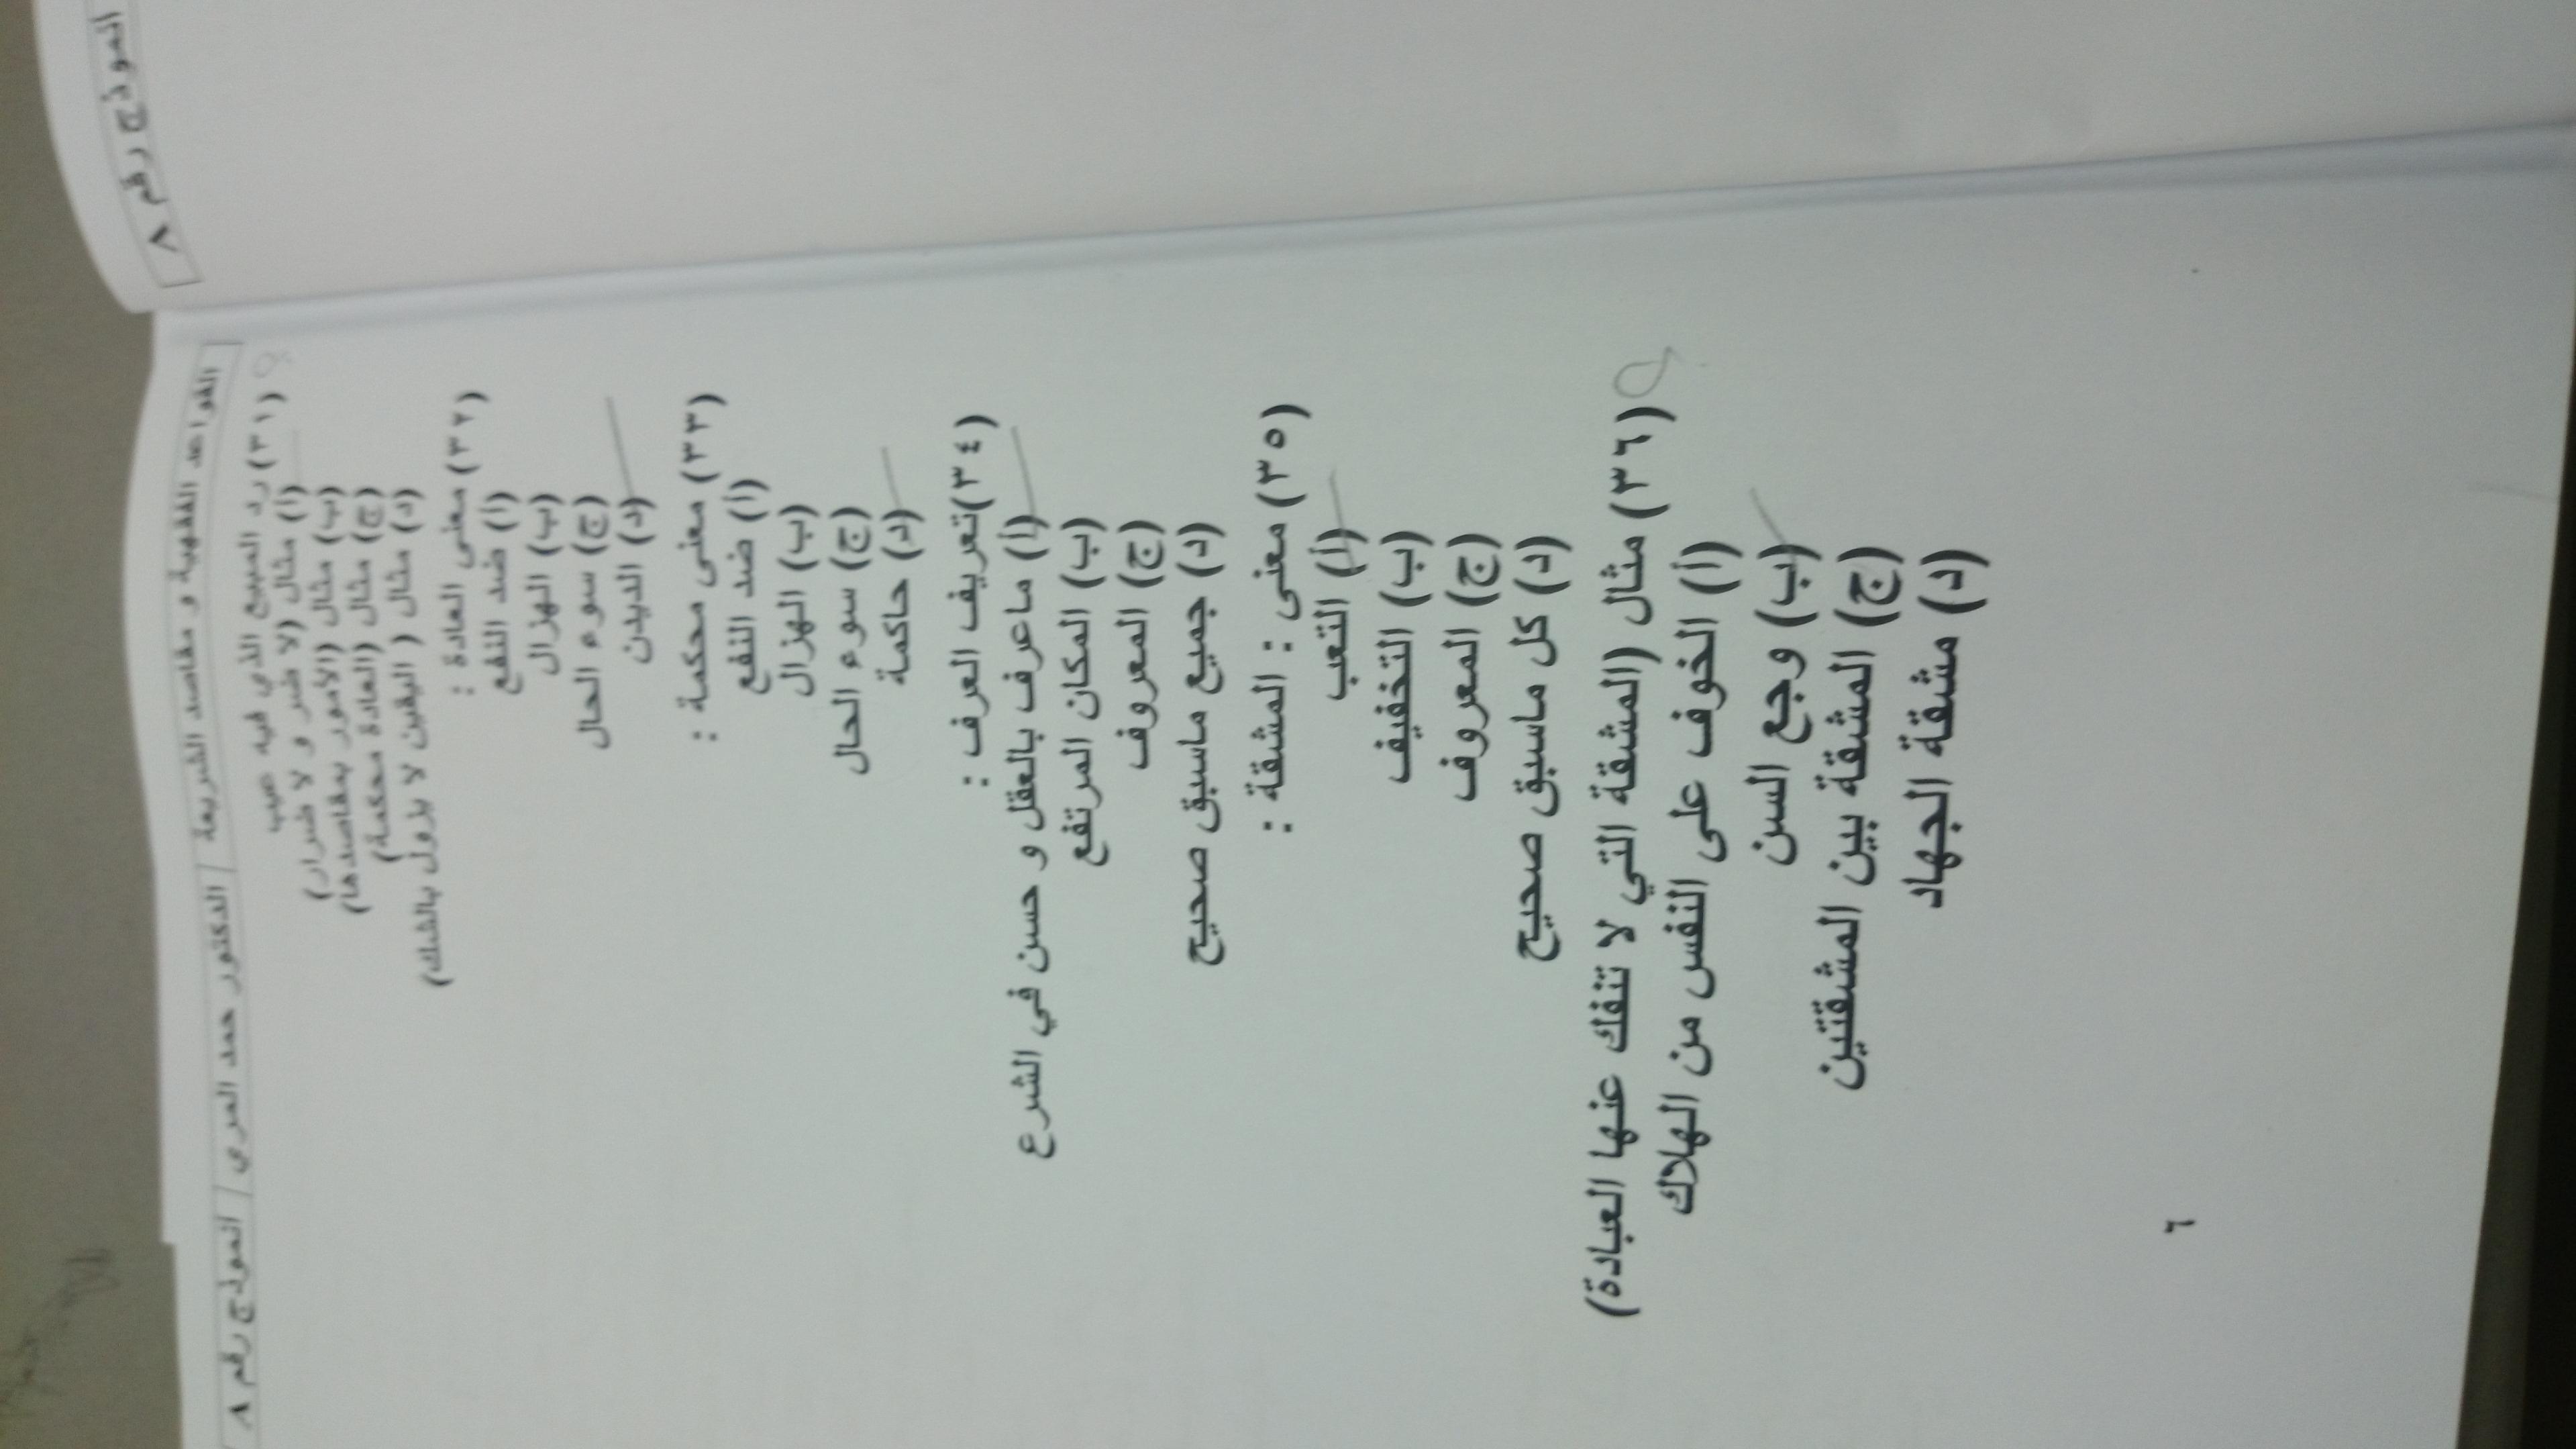 النموذج رقم ٧
القواعد الفقهية و مقاصد الشريعة
الدكتور حمد المري
النموذج رقم ٨
(٣١) رد المبيع الذي فيه عيب
(أ) مثال (لا ضرر و لا ضرار)
(ب) مثال (الأمور بمقاصدها)
(ج) مثال (العادة محكمة)
(د) مثال ( اليقين لا يزول بالشك)
(٣٢) معنى العادة :
(أ) ضد النفع
(ب) الهزال
(ج) سوء الحال
(د) الديدن
(٣٣) معنى محكمة :
(أ) ضد النفع
(ب) الهزال
(ج) سوء الحال
(د) حاكمة
(٣٤)تعريف العرف :
(أ) ماعرف بالعقل و حسن في الشرع
(ب) المكان المرتفع
(ج) المعروف
(د) جميع ماسبق صحيح
(٣٥) معنى : المشقة :
(أ) التعب
(ب) التخفيف
(ج) المعروف
(د) كل ماسبق صحيح
(٣٦) مثال (المشقة التي لا تنفك عنها العبادة)
(أ) الخوف على النفس من الهلاك
(ب) وجع السن
(ج) المشقة بين المشقتين
(د) مشقة الجهاد
٦